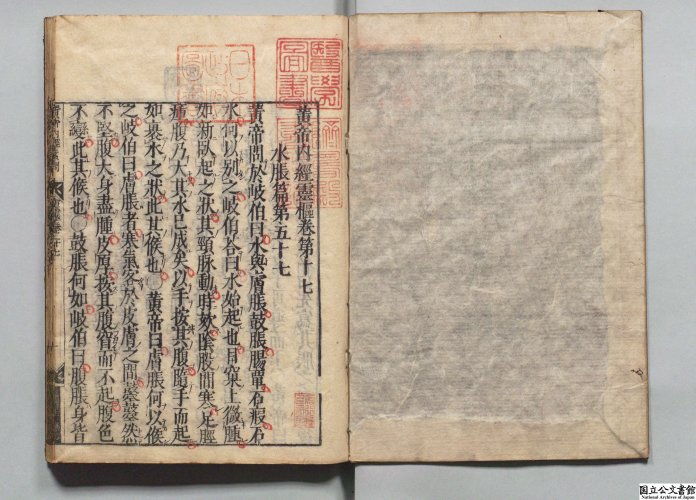 黄帝内經靈樞卷第十七
水脹篇第五十七
黄帝問於岐伯曰水與膚脹鼓脹腸覃石瘕石
水何以别之岐伯荅曰水始起也目窠上微腫
如新臥起之狀其頸脉動時欬陰股間寒足脛
瘇腹乃大其水已成矣以手按其腹隨手而起
如裹水之狀此其候也○黄帝曰膚脹何以候
之岐伯曰膚脹者寒氣客於皮膚之間𪔣𪔣然
不堅腹大身盡腫皮厚按其腹窅而不起腹色
不變此其候也○鼓脹何如岐伯曰腹脹身皆
国立公文書館
National Archives of Japan